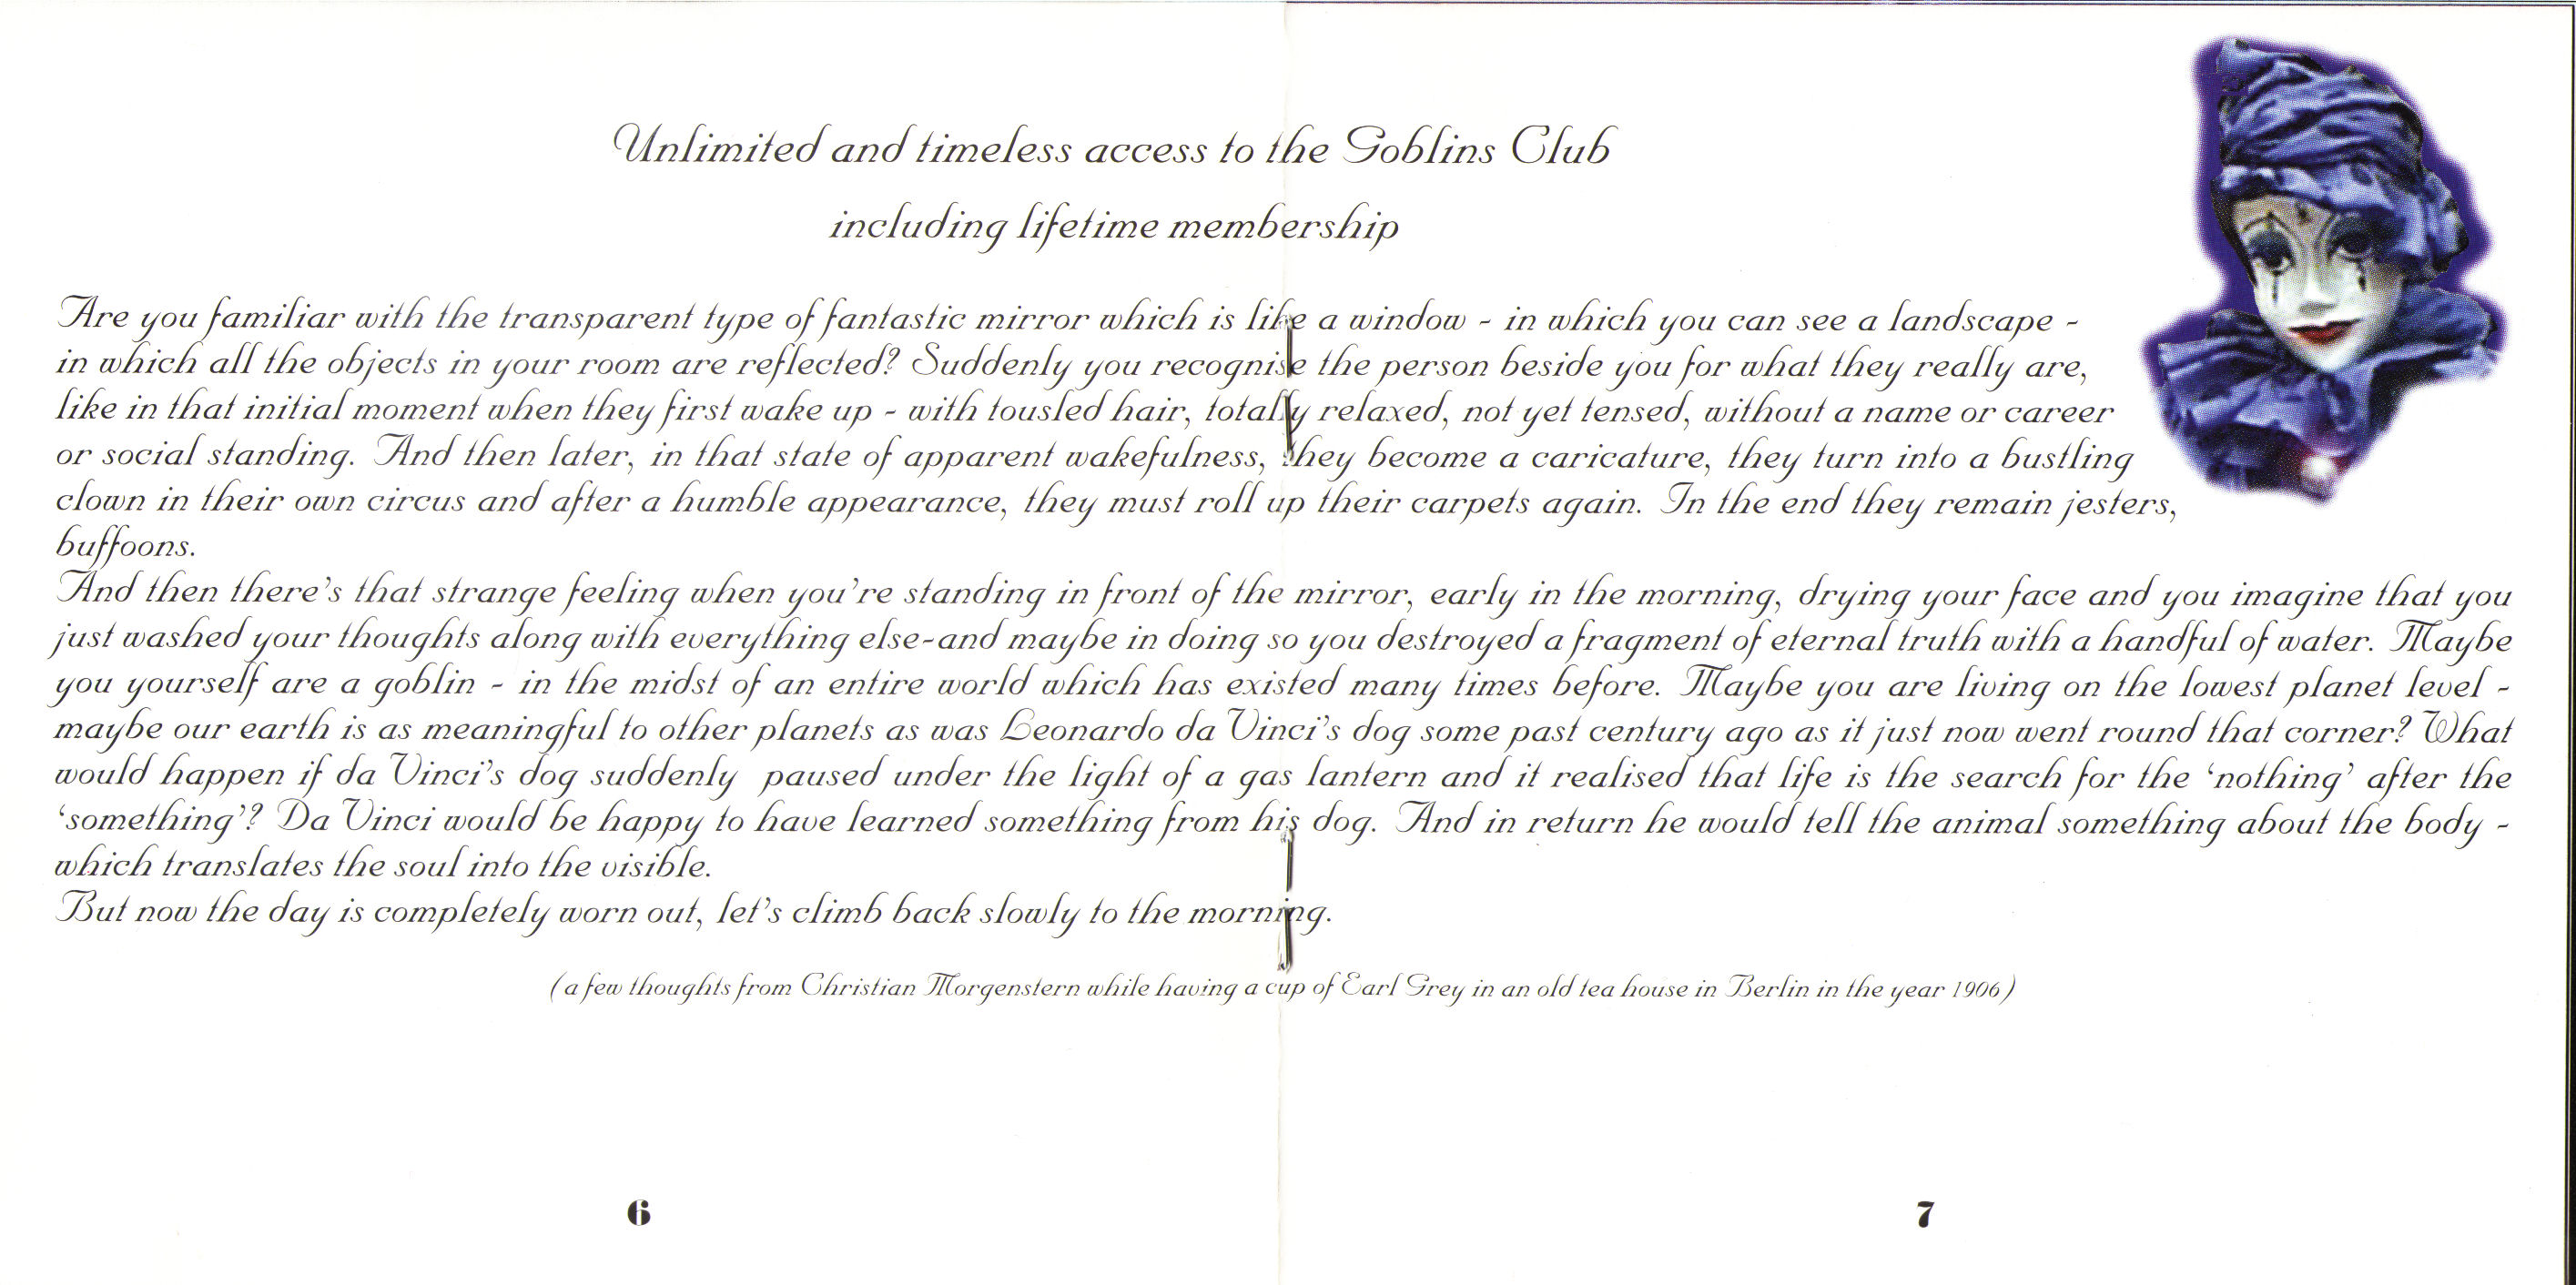 Unlimited and timeless access to the Goblins Club
including lifetime membership
Are you familiar with the transparent type of fantastic mirror which is like a window - in which you can see a landscape -
in which all the objects in your room are reflected? Suddenly you recognise the person beside you for what they really are,
like in that initial moment when they first wake up - with tousled hair, totally relaxed, not yet tensed, without a name or career
or social standing. And then later, in that state of apparent wakefulness, they become a caricature, they turn into a bustling
clown in their own circus and after a humble appearance, they must roll up their carpets again. In the end they remain jesters,
buffoons.
And then there's that strange feeling when you're standing in front of the mirror, early in the morning, drying your face and you imagine that you
just washed your thoughts along with everything else-and maybe in doing so you destroyed a fragment of eternal truth with a handful of water. Maybe
you yourself are a goblin - in the midst of an entire world which has existed many times before. Maybe you are living on the lowest planet level -
maybe our earth is as meaningful to other planets as was Leonardo da Vinci's dog some past century ago as it just now went round that corner? What
would happen if da Vinci's dog suddenly paused under the light of a gas lantern and it realised that life is the search for the 'nothing' after the
'something'? Da Vinci would be happy to have learned something from his dog. And in return he would tell the animal something about the body -
which translates the soul into the visible.
But now the day is completely worn out, let's climb back slowly to the morning.
(a few thoughts from Christian Morgenstern while having a cup of Earl Grey in an old tea house in Berlin in the year 1906)
6
7